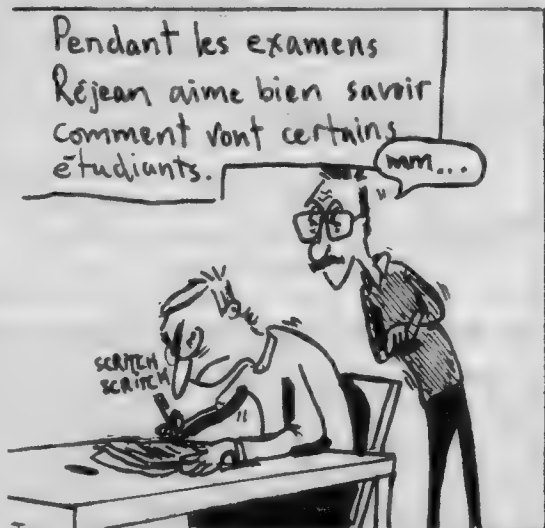 Pendant les examens
Réjean aime bien savoir
comment vont certains
étudiants.
mm...
SCRITCH
SCRITCH